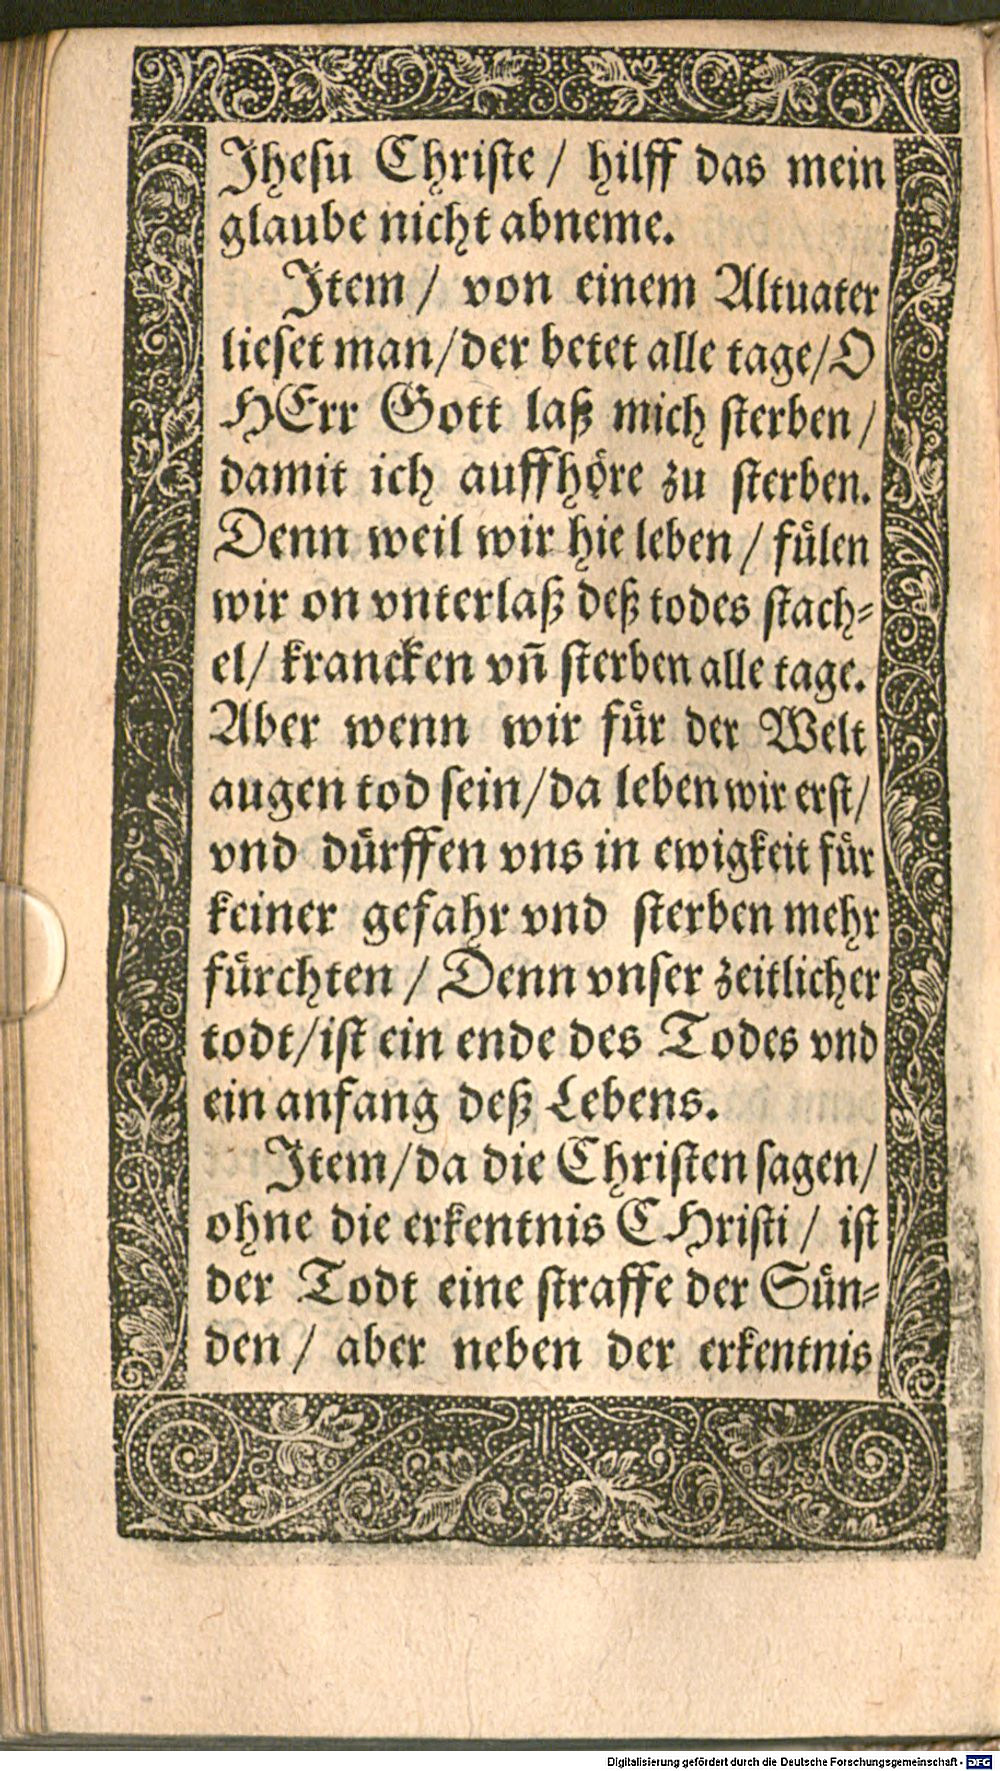 Jheſu Chriſte / hilff das mein
glaube nicht abneme.
Jtem / von einem Altuater
lieſet man/der betet alle tage/O
HErr Gott laß mich ſterben /
damit ich auffhöre zu ſterben.
Denn weil wir hie leben / fülen
wir on vnterlaß deß todes ſtach⸗
el/ krancken vñ ſterben alle tage.
Aber wenn wir für der Welt
augen tod ſein/da leben wir erſt/
vnd dürffen vns in ewigkeit für
keiner gefahr vnd ſterben mehr
fürchten / Denn vnſer zeitlicher
todt/iſt ein ende des Todes vnd
ein anfang deß Lebens.
Jtem/da die Chriſten ſagen/
ohne die erkentnis CHriſti / iſt
der Todt eine ſtraffe der Sün⸗
den / aber neben der erkentnis
Digitalisierung gefördert durch die Deutsche Forschungsgemeinschaft - DFG